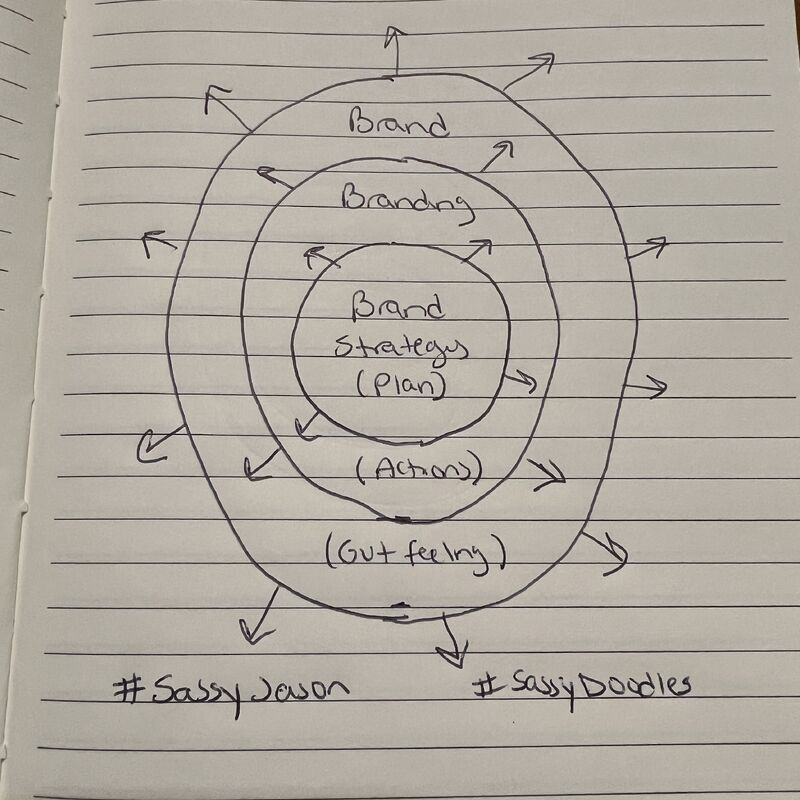 Brand
Branding
Brand
Strategy
(Plan)
(Actions)
(Gut feeling)
#SassyJason
#SassyDoodles